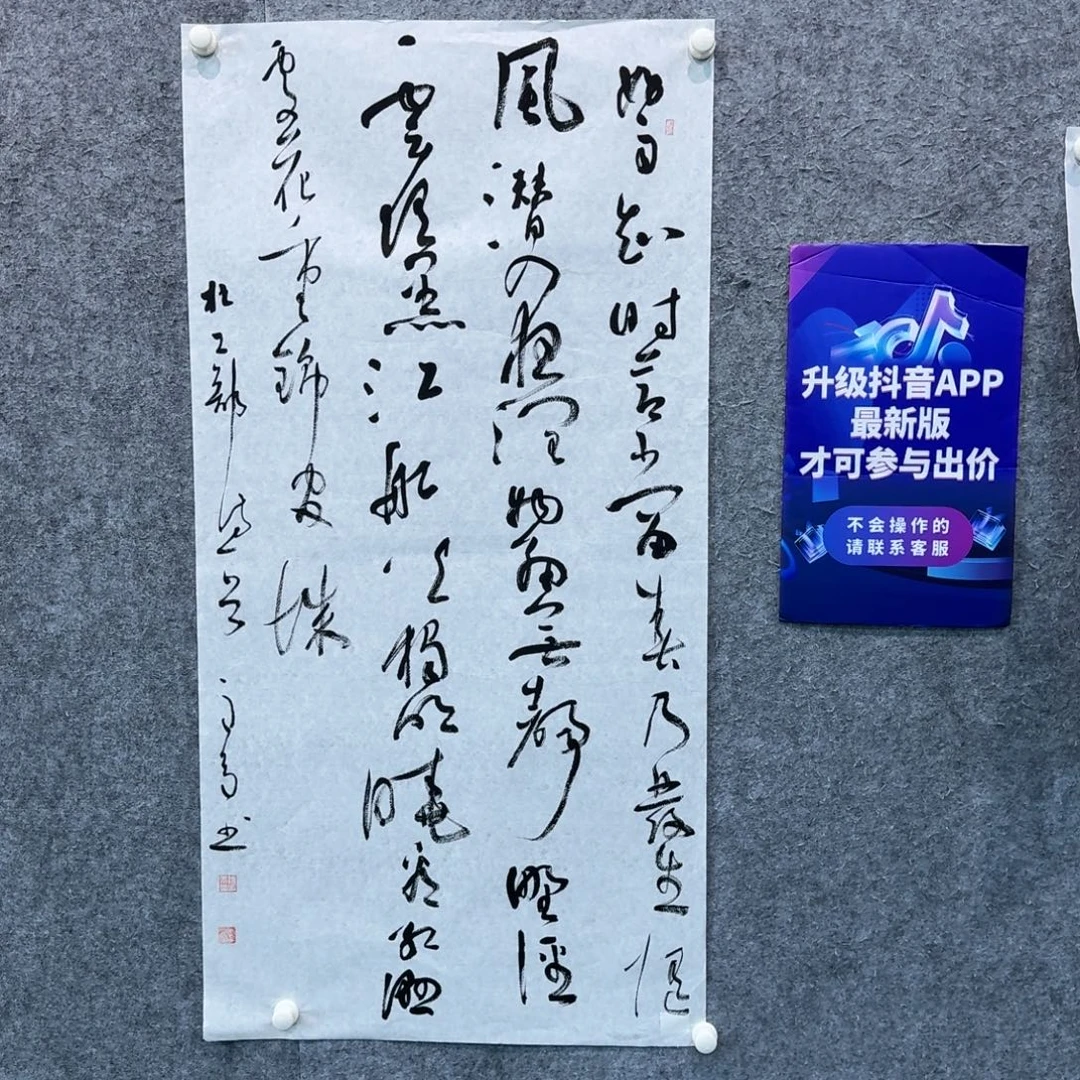 好雨知时节當春乃發生随
風潜入夜润物细無聲野徑
雲俱黑江船火獨明曉看红濕
處花重錦官城
杜工部诗一首 书
升级抖音APP
最新版
才可参与出价
不会操作的
请联系客服